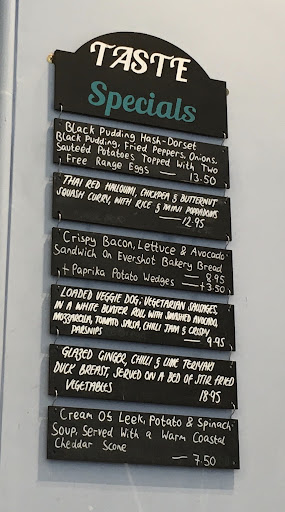 TASTE
Specials
Black Pudding Hash-Dorset
Black Pudding, Fried Peppers, Onions,
Sauteéd Potatoes Topped With Two
Free Range Eggs — 13.50
THAI RED HALLOUMI, CHICKPEA & BUTTERNUT
SQUASH CURRY, WITH RICE & MINI POPPADOMS
— 12.95
Crispy Bacon, Lettuce & Avocado
Sandwich On Evershot Bakery Bread
— 8.95
+ Paprika Potato Wedges — +3.50
LOADED VEGGIE DOG, VEGETARIAN SAUSAGES,
IN A WHITE BUTTER ROLL WITH SMASHED AVOCADO,
MOZZARELLA, TOMATO SALSA, CHILLI JAM & CRISPY
PARSNIPS — 9.95
GLAZED GINGER, CHILLI & LIME TERIYAKI
DUCK BREAST, SERVED ON A BED OF STIR FRIED
VEGETABLES 18.95
Cream Of Leek, Potato & Spinach
Soup, Served With a Warm Coastal
Cheddar Scone
— 7.50